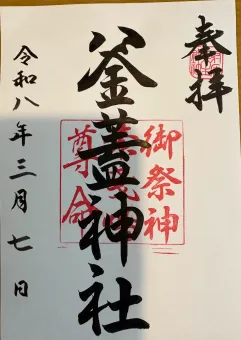 奉拝
釜蓋神社
御祭神
尊命
令和八年三月七日